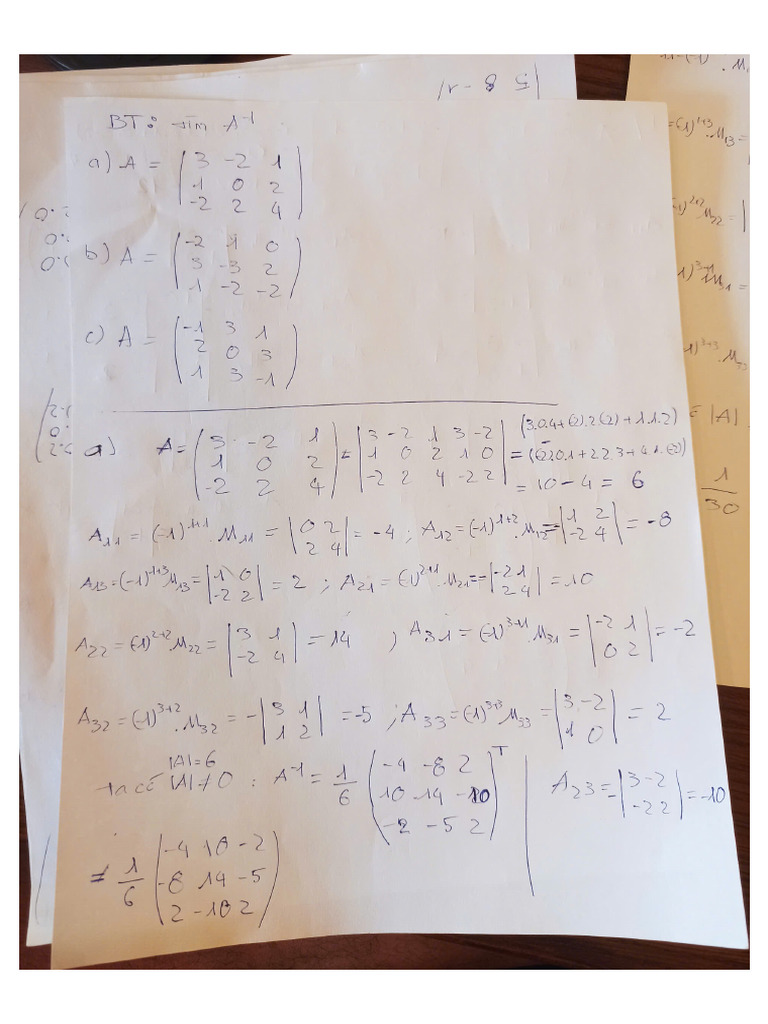 BT: tìm A⁻¹
a) A = (3 -2 1
1 0 2
-2 2 4)
b) A = (-2 1 0
3 -3 2
1 -2 -2)
c) A = (-1 3 1
2 0 3
1 3 -1)
a) A = (3 -2 1 = |3 -2 1 3 -2 (3.0.4+(-2).2(-2)+1.1.2)
1 0 2 1 0 2 1 0 = -((-2).0.1+2.2.3+4.1.(-2))
-2 2 4) -2 2 4 -2 2| = 10 - 4 = 6
A₁₁ = (-1)¹⁺¹.M₁₁ = |0 2
2 4| = -4 ; A₁₂ = (-1)¹⁺².M₁₂ = -|1 2
-2 4| = -8
A₁₃ = (-1)¹⁺³M₁₃ = |1 0
-2 2| = 2 ; A₂₁ = (-1)²⁺¹.M₂₁ = -|-2 1
2 4| = 10
A₂₂ = (-1)²⁺²M₂₂ = |3 1
-2 4| = 14 , A₃₁ = (-1)³⁺¹.M₃₁ = |-2 1
0 2| = -2
A₃₂ = (-1)³⁺².M₃₂ = -|3 1
1 2| = -5 ; A₃₃ = (-1)³⁺³M₃₃ = |3 -2
1 0| = 2
|A| = 6
|A| ≠ 0 : A⁻¹ = 1/6 (-4 -8 2
10 14 -10
-2 -5 2)ᵀ
A₂₃ = -|3 -2
-2 2| = -10
= 1/6 (-4 10 -2
-8 14 -5
2 -10 2)
|5 8 -1|
.M₁₃
M₂₂ = |
M₃₁ =
.M₃₃
|A|
1/30